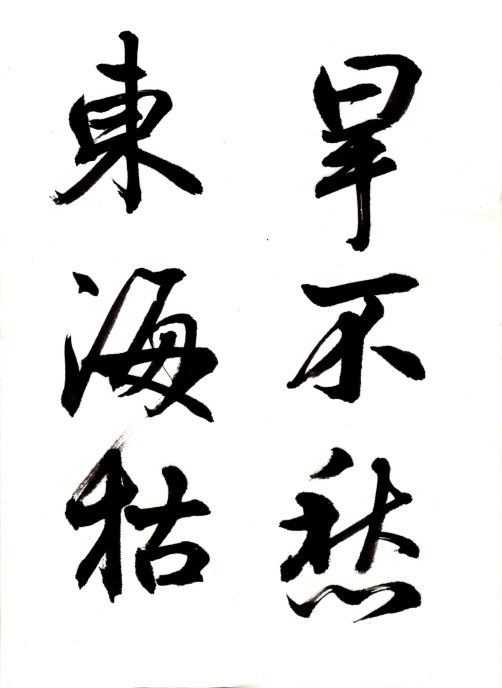 旱不愁
東海枯